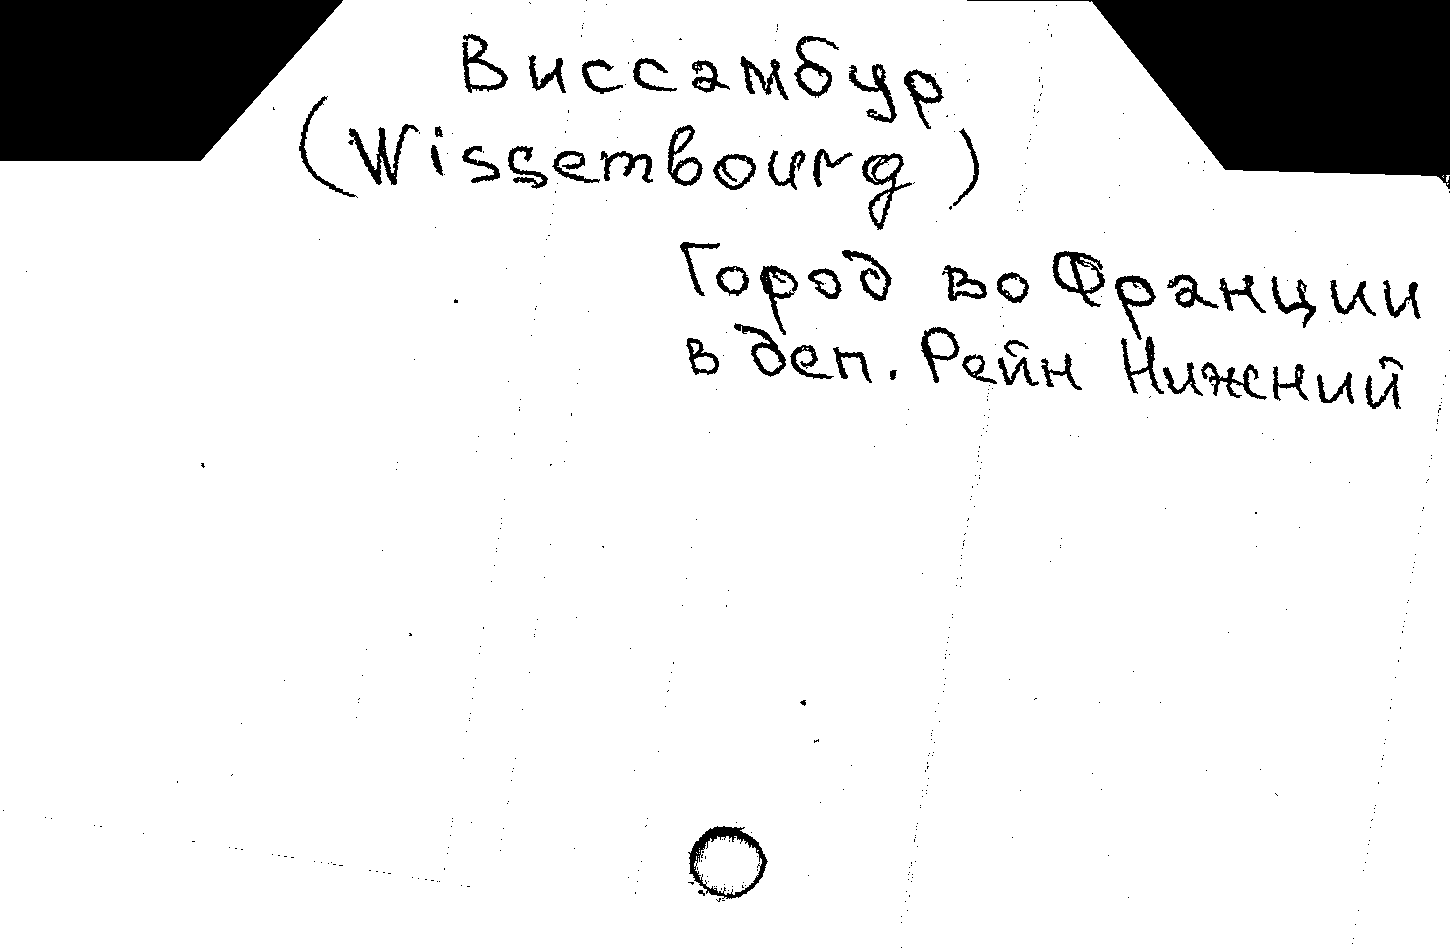 Виссамбур
(Wissembourg)
Город во Франции
в деп. Рейн Нижний